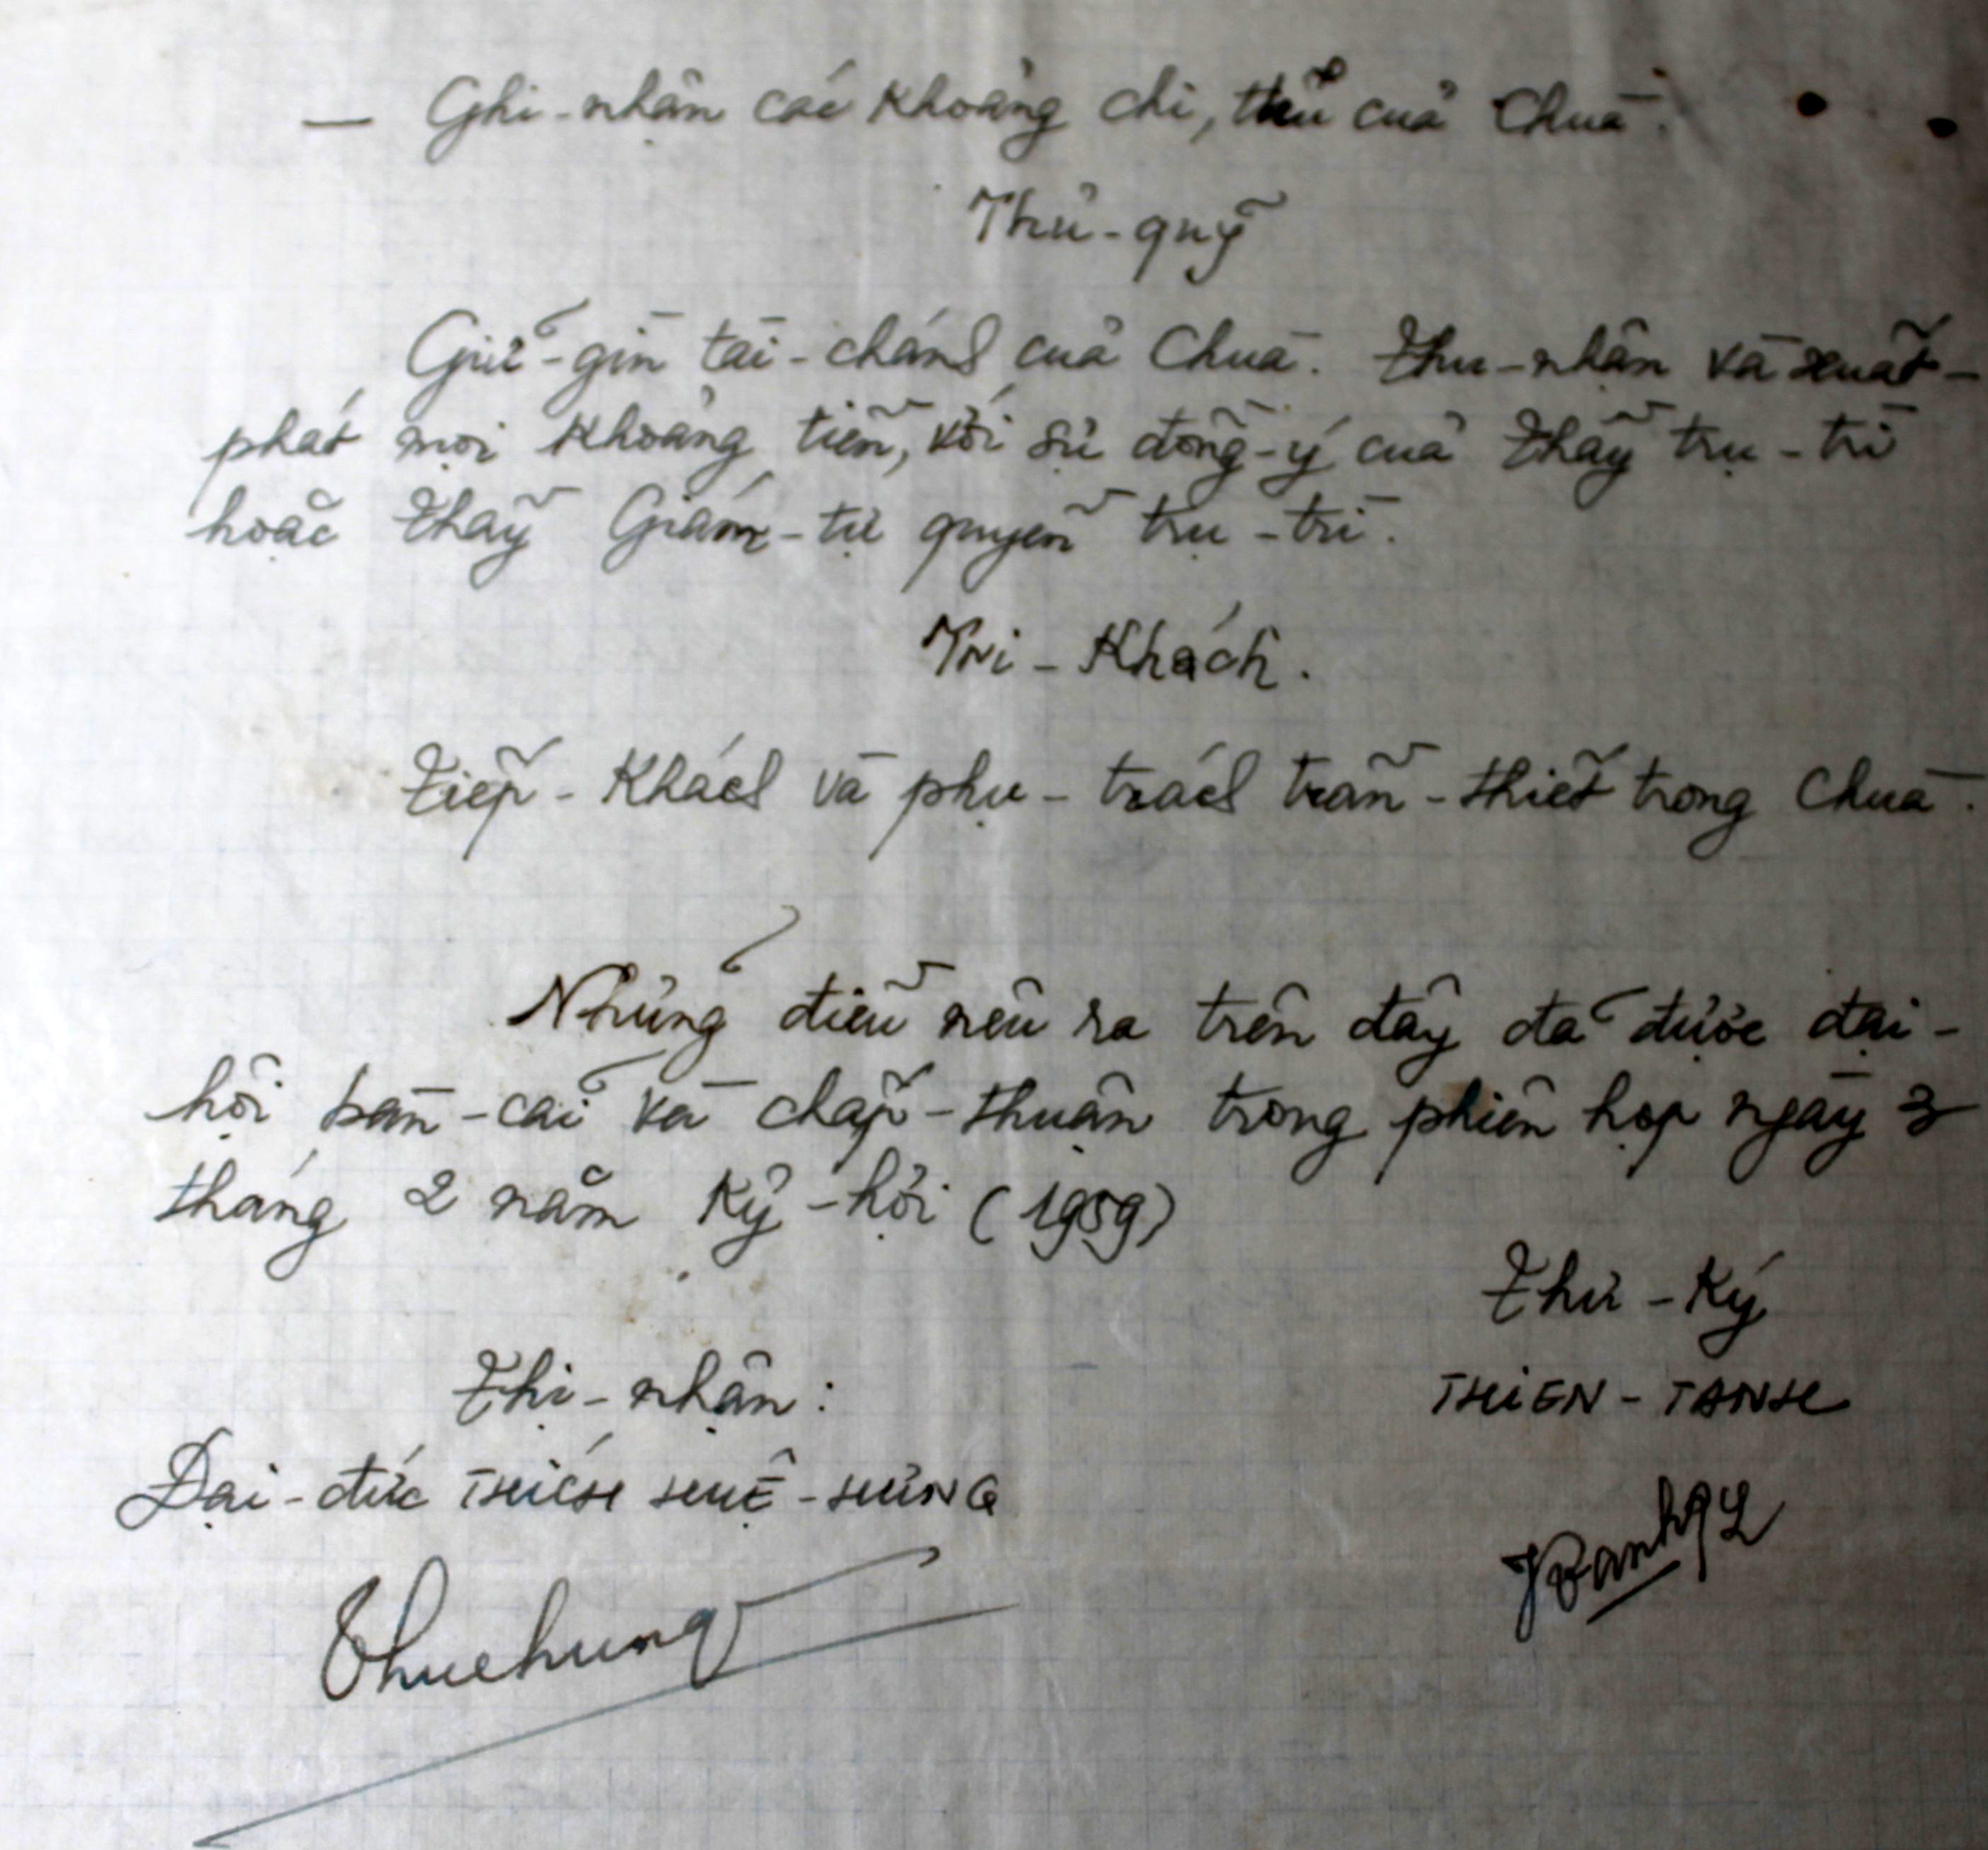 — Ghi-nhận các khoảng chi, thu của Chùa.
Thủ-quỹ
Giữ-gìn tài-chánh của Chùa. Thu-nhận và xuất-
phát mọi khoảng tiền, với sự đồng-ý của Thầy trụ-trì
hoặc Thầy Giám-tự quyền trụ-trì.
Tri-Khách.
Tiếp-Khách và phụ-trách trần-thiết trong Chùa.
Những điều nêu ra trên đây đã được đại-
hội bàn-cãi và chấp-thuận trong phiên họp ngày 3
tháng 2 năm Kỷ-hợi (1959)
Thư-Ký
THIEN-TANH
Thị-nhận:
Đại-đức THÍCH HUỆ-HƯNG
Thuehung